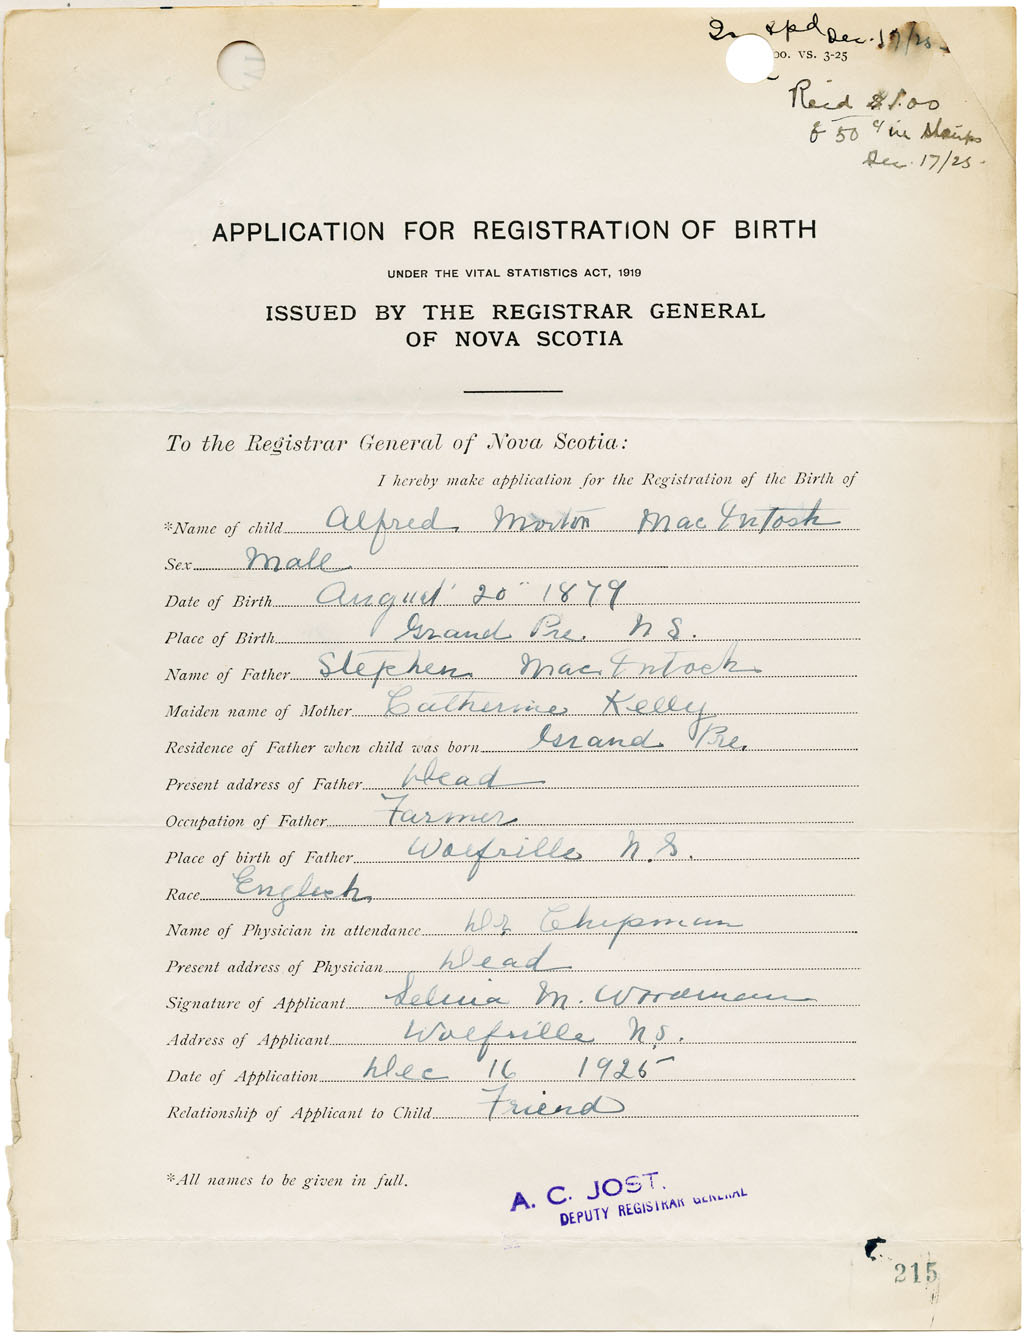 Dec. 17/25
00. VS. 3-25
Recd $1.00
& 50 ¢ in stamps
Dec. 17/25.
APPLICATION FOR REGISTRATION OF BIRTH
UNDER THE VITAL STATISTICS ACT, 1919
ISSUED BY THE REGISTRAR GENERAL
OF NOVA SCOTIA
To the Registrar General of Nova Scotia:
I hereby make application for the Registration of the Birth of
*Name of child Alfred Morton MacIntosh
Sex Male
Date of Birth August 20" 1879
Place of Birth Grand Pre. N S.
Name of Father Stephen MacIntosh
Maiden name of Mother Catherine Kelly
Residence of Father when child was born Grand Pre.
Present address of Father Dead
Occupation of Father Farmer
Place of birth of Father Wolfville N.S.
Race English
Name of Physician in attendance Dr Chipman
Present address of Physician Dead
Signature of Applicant Selina M. Woodman
Address of Applicant Wolfville N.S.
Date of Application Dec 16 1925
Relationship of Applicant to Child Friend
*All names to be given in full.
A. C. JOST.
DEPUTY REGISTRAR GENERAL
215